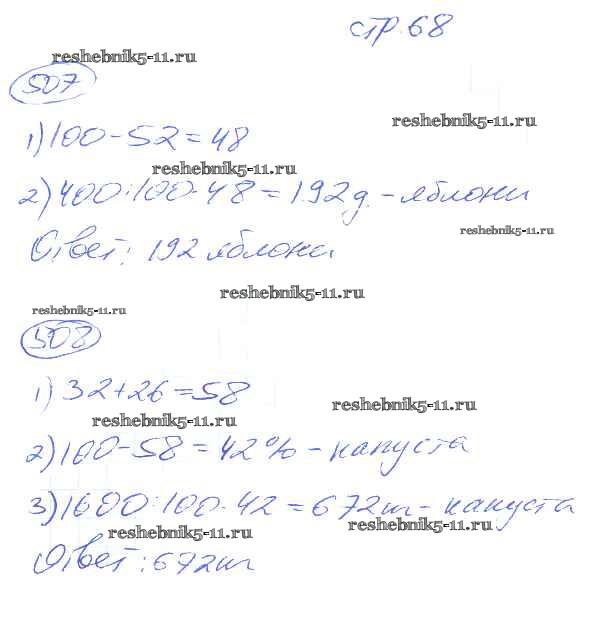 стр. 68
reshebnik5-11.ru
507
reshebnik5-11.ru
1) 100 - 52 = 48
reshebnik5-11.ru
2) 400 : 100 · 48 = 192 д. - яблони
reshebnik5-11.ru
Ответ: 192 яблони
reshebnik5-11.ru
reshebnik5-11.ru
508
1) 32 + 26 = 58
reshebnik5-11.ru
reshebnik5-11.ru
2) 100 - 58 = 42% - капуста
3) 1600 : 100 · 42 = 672 т - капуста
reshebnik5-11.ru
reshebnik5-11.ru
Ответ: 672 т